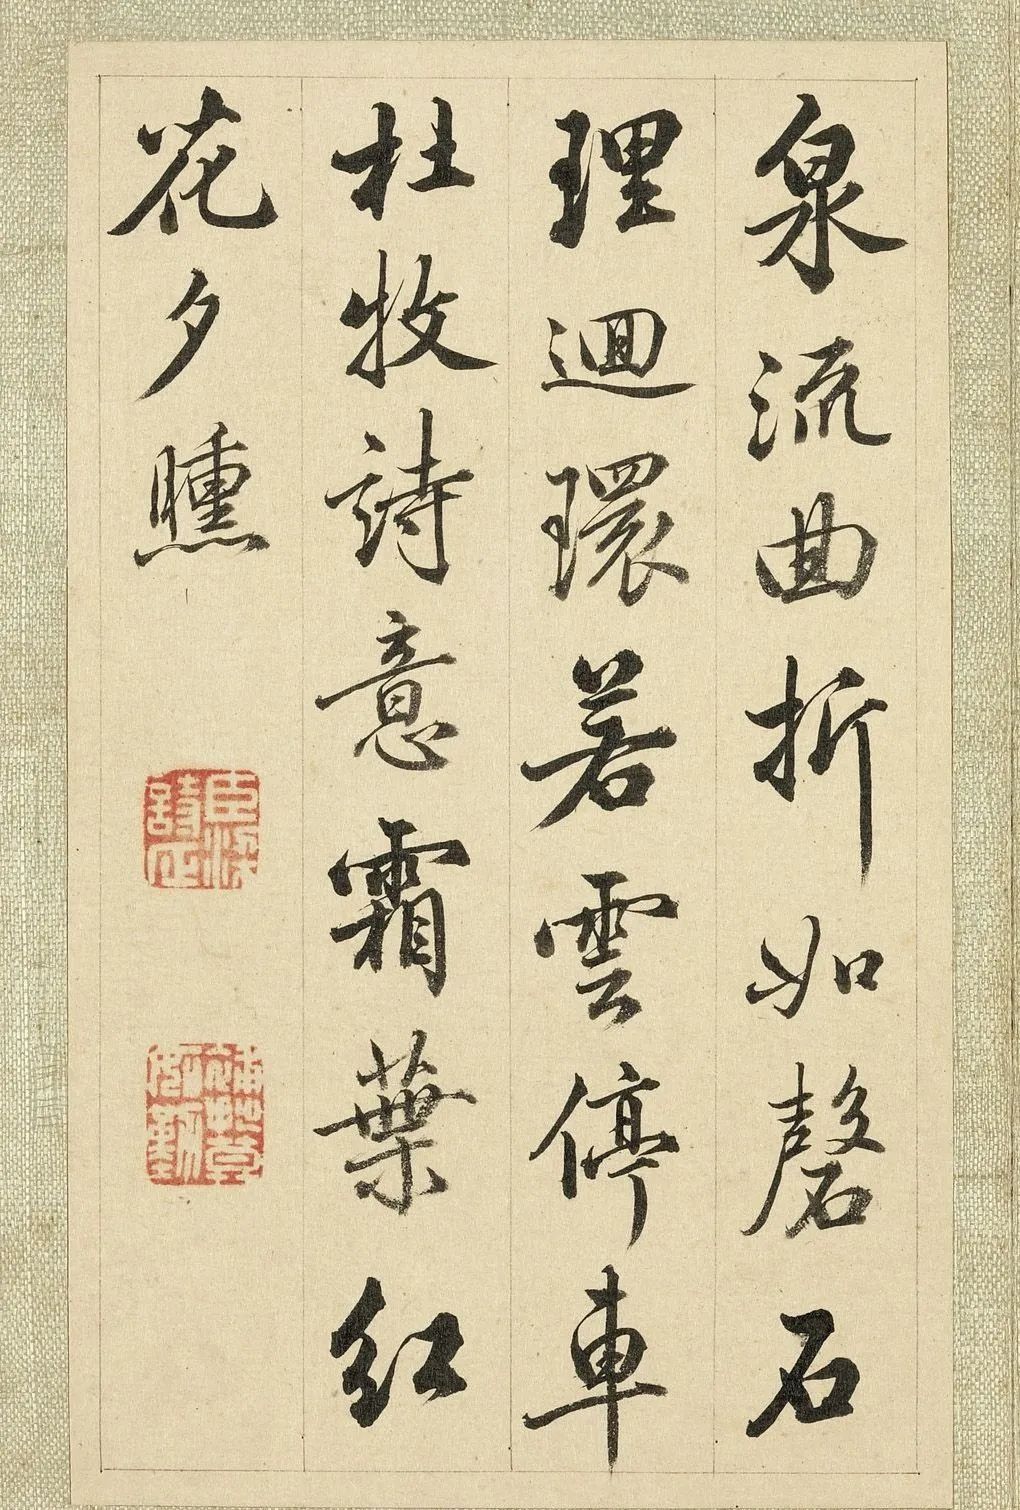 泉流曲折如磬石
理迴環若雲停車
杜牧詩意霜葉紅
花夕曛